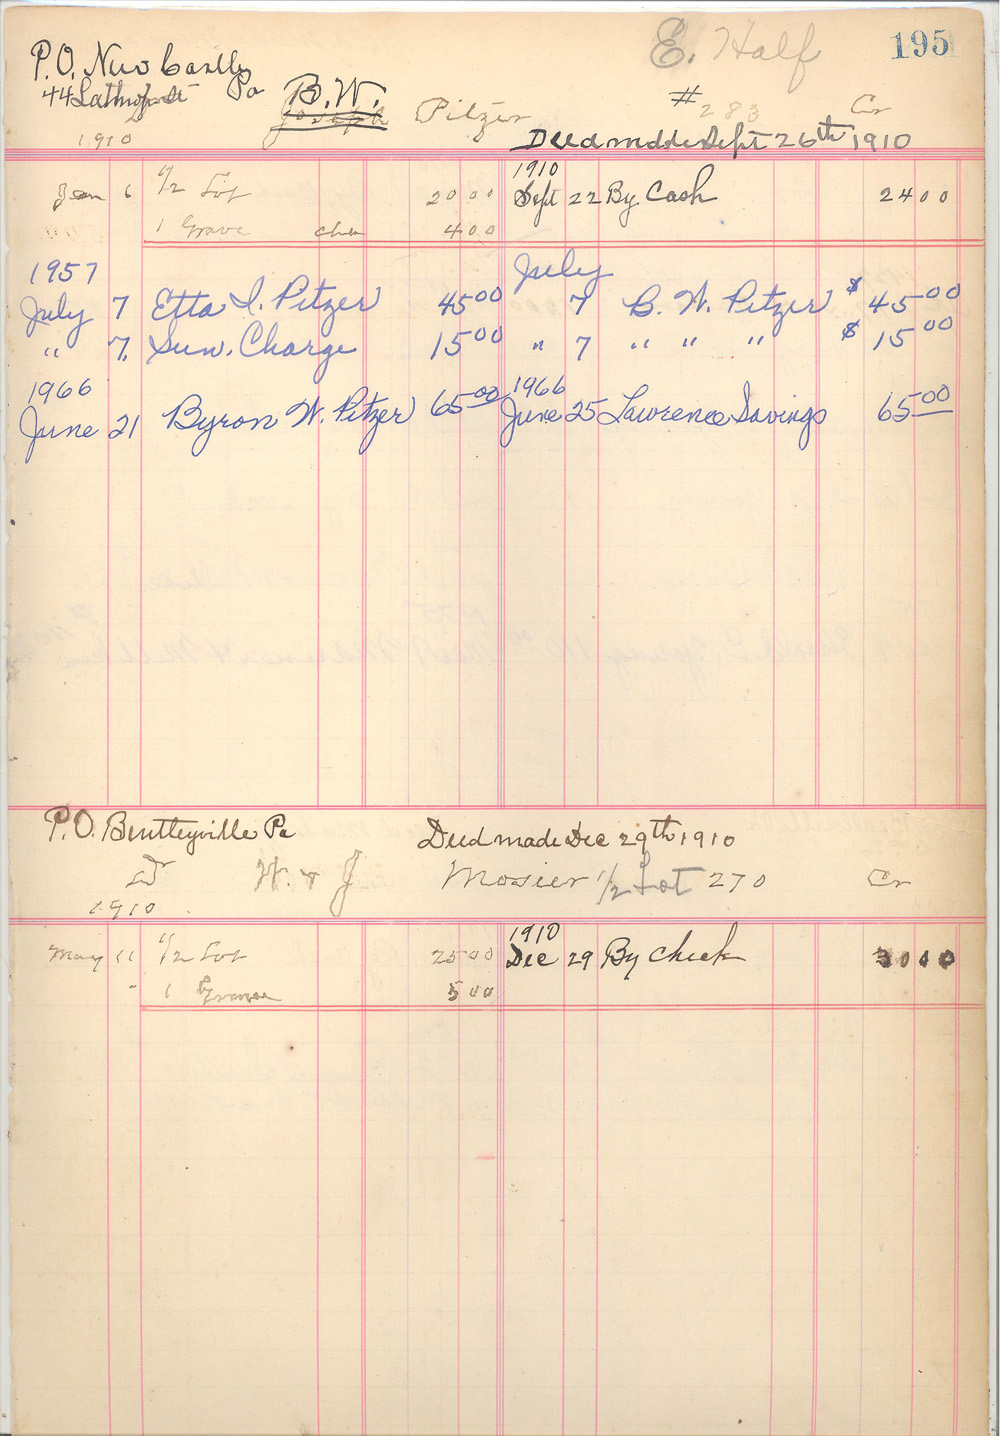 195
E. Half
P.O. New Castle
Pa
44 Lathrop St
B.W.
Joseph Pitzer
# 283
Cr
1910
Deed made Sept 26th 1910
Jan 6 1/2 Lot 20 00
1 Grave 4 00
1910
Sept 22 By Cash 24 00
1957
July 7 Etta I. Pitzer 45 00
" 7. Sun. Charge 15 00
July
7 B. W. Pitzer $ 45 00
" 7 " " " $ 15 00
1966
June 21 Byron W. Pitzer 65 00
1966
June 25 Lawrence Savings 65 00
P.O. Bentleyville Pa
Deed made Dec 29th 1910
Dr W. & J Mosier 1/2 Lot 270 Cr
1910
May 11 1/2 Lot 25 00
1 Grave 5 00
1910
Dec 29 By Check 30 00